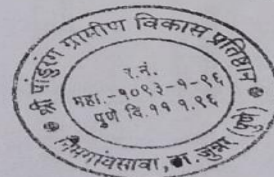 श्री पांडुरंग ग्रामीण विकास प्रतिष्ठान
र.नं.
महा.-१०९३-१-९६
पुणे दि.११ १.९६
निमगांवसावा, ता. जुन्नर (पुणे)